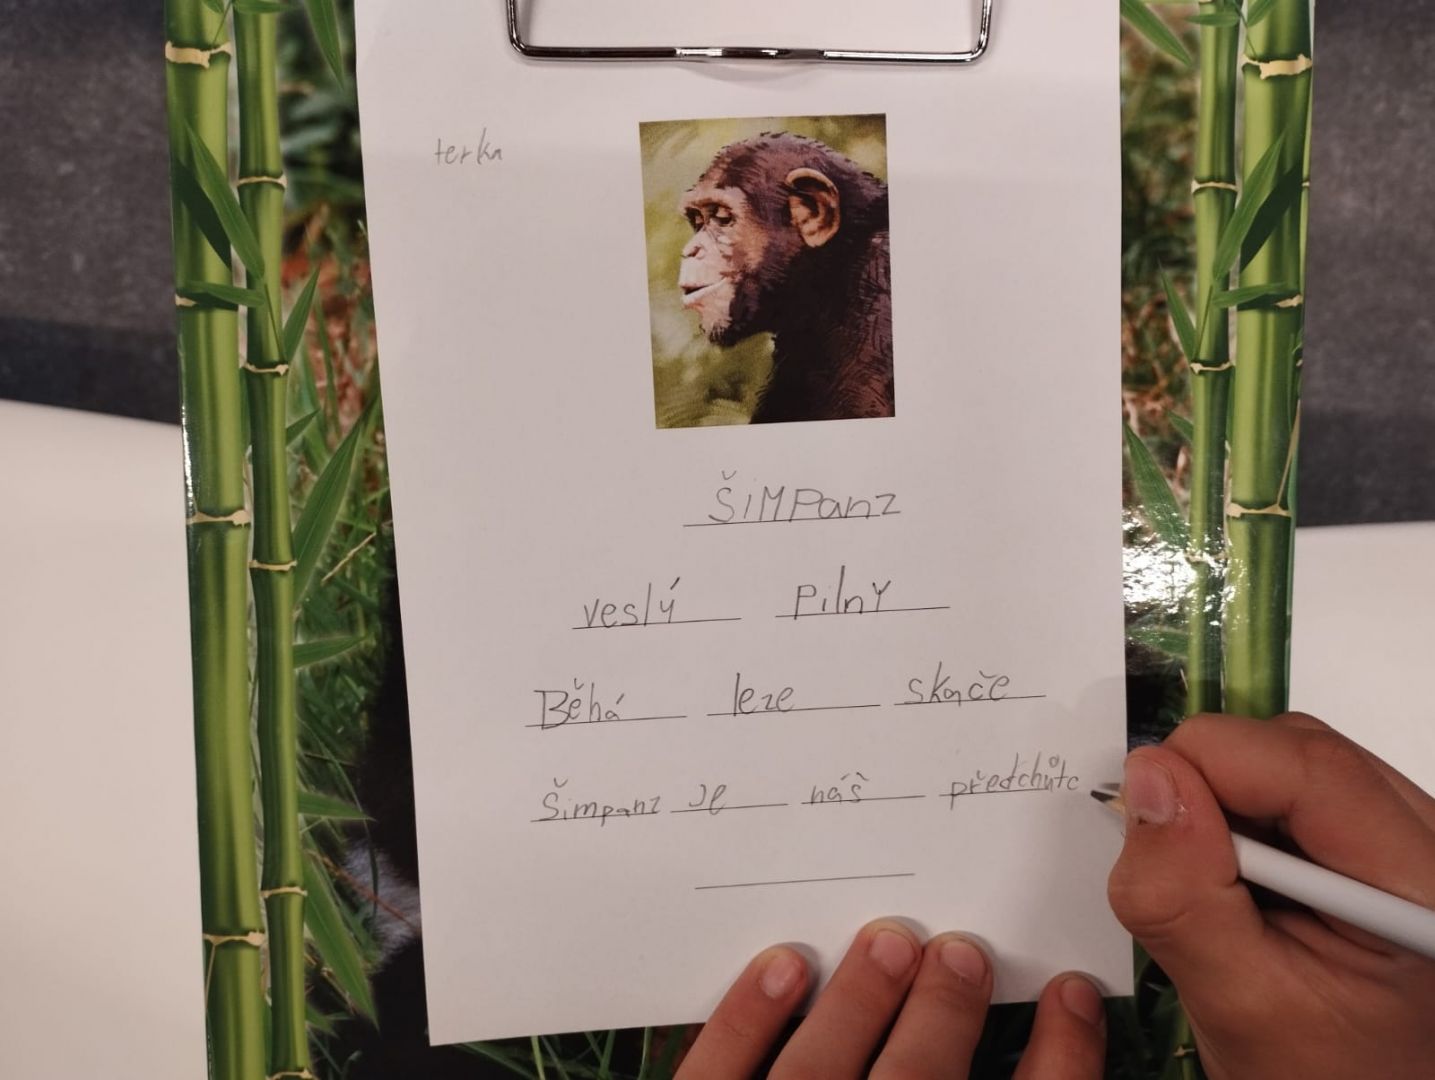 terka
ŠiMPanz
veslý Pilný
Běhá leze skače
Šimpanz je náš předchůtc